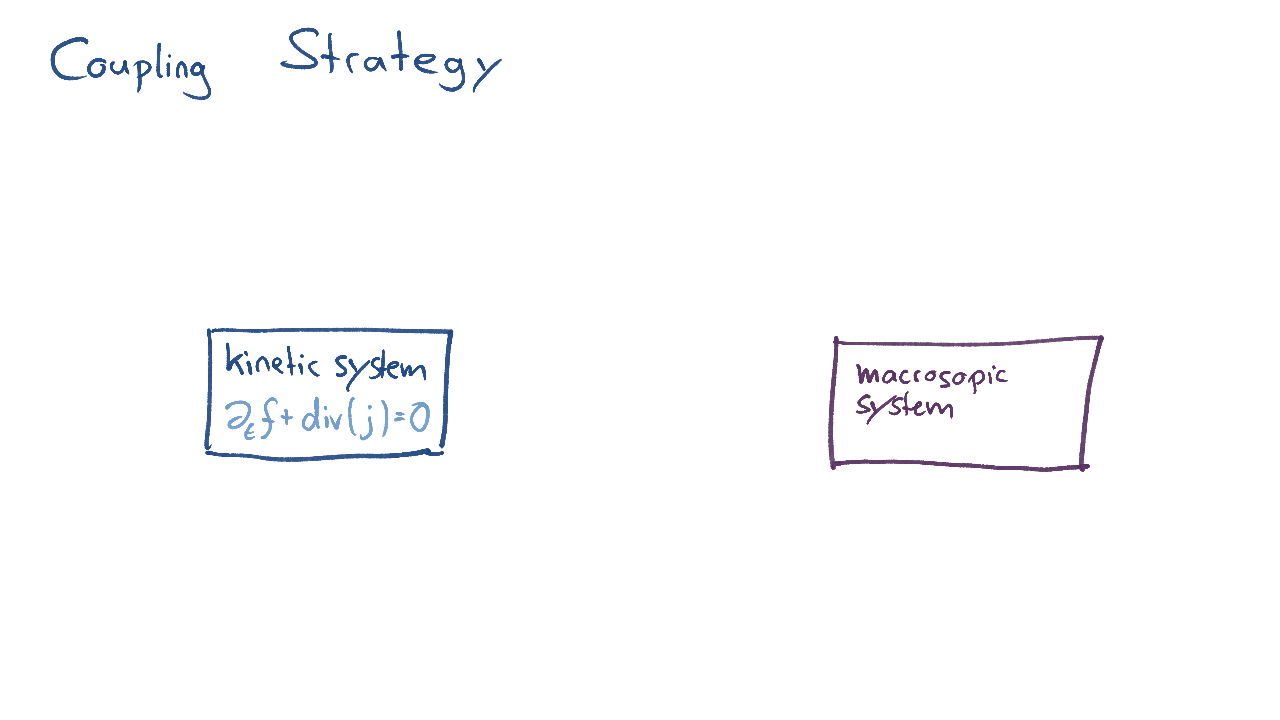 Coupling Strategy
kinetic system
∂ₜf + div(j) = 0
macrosopic
system